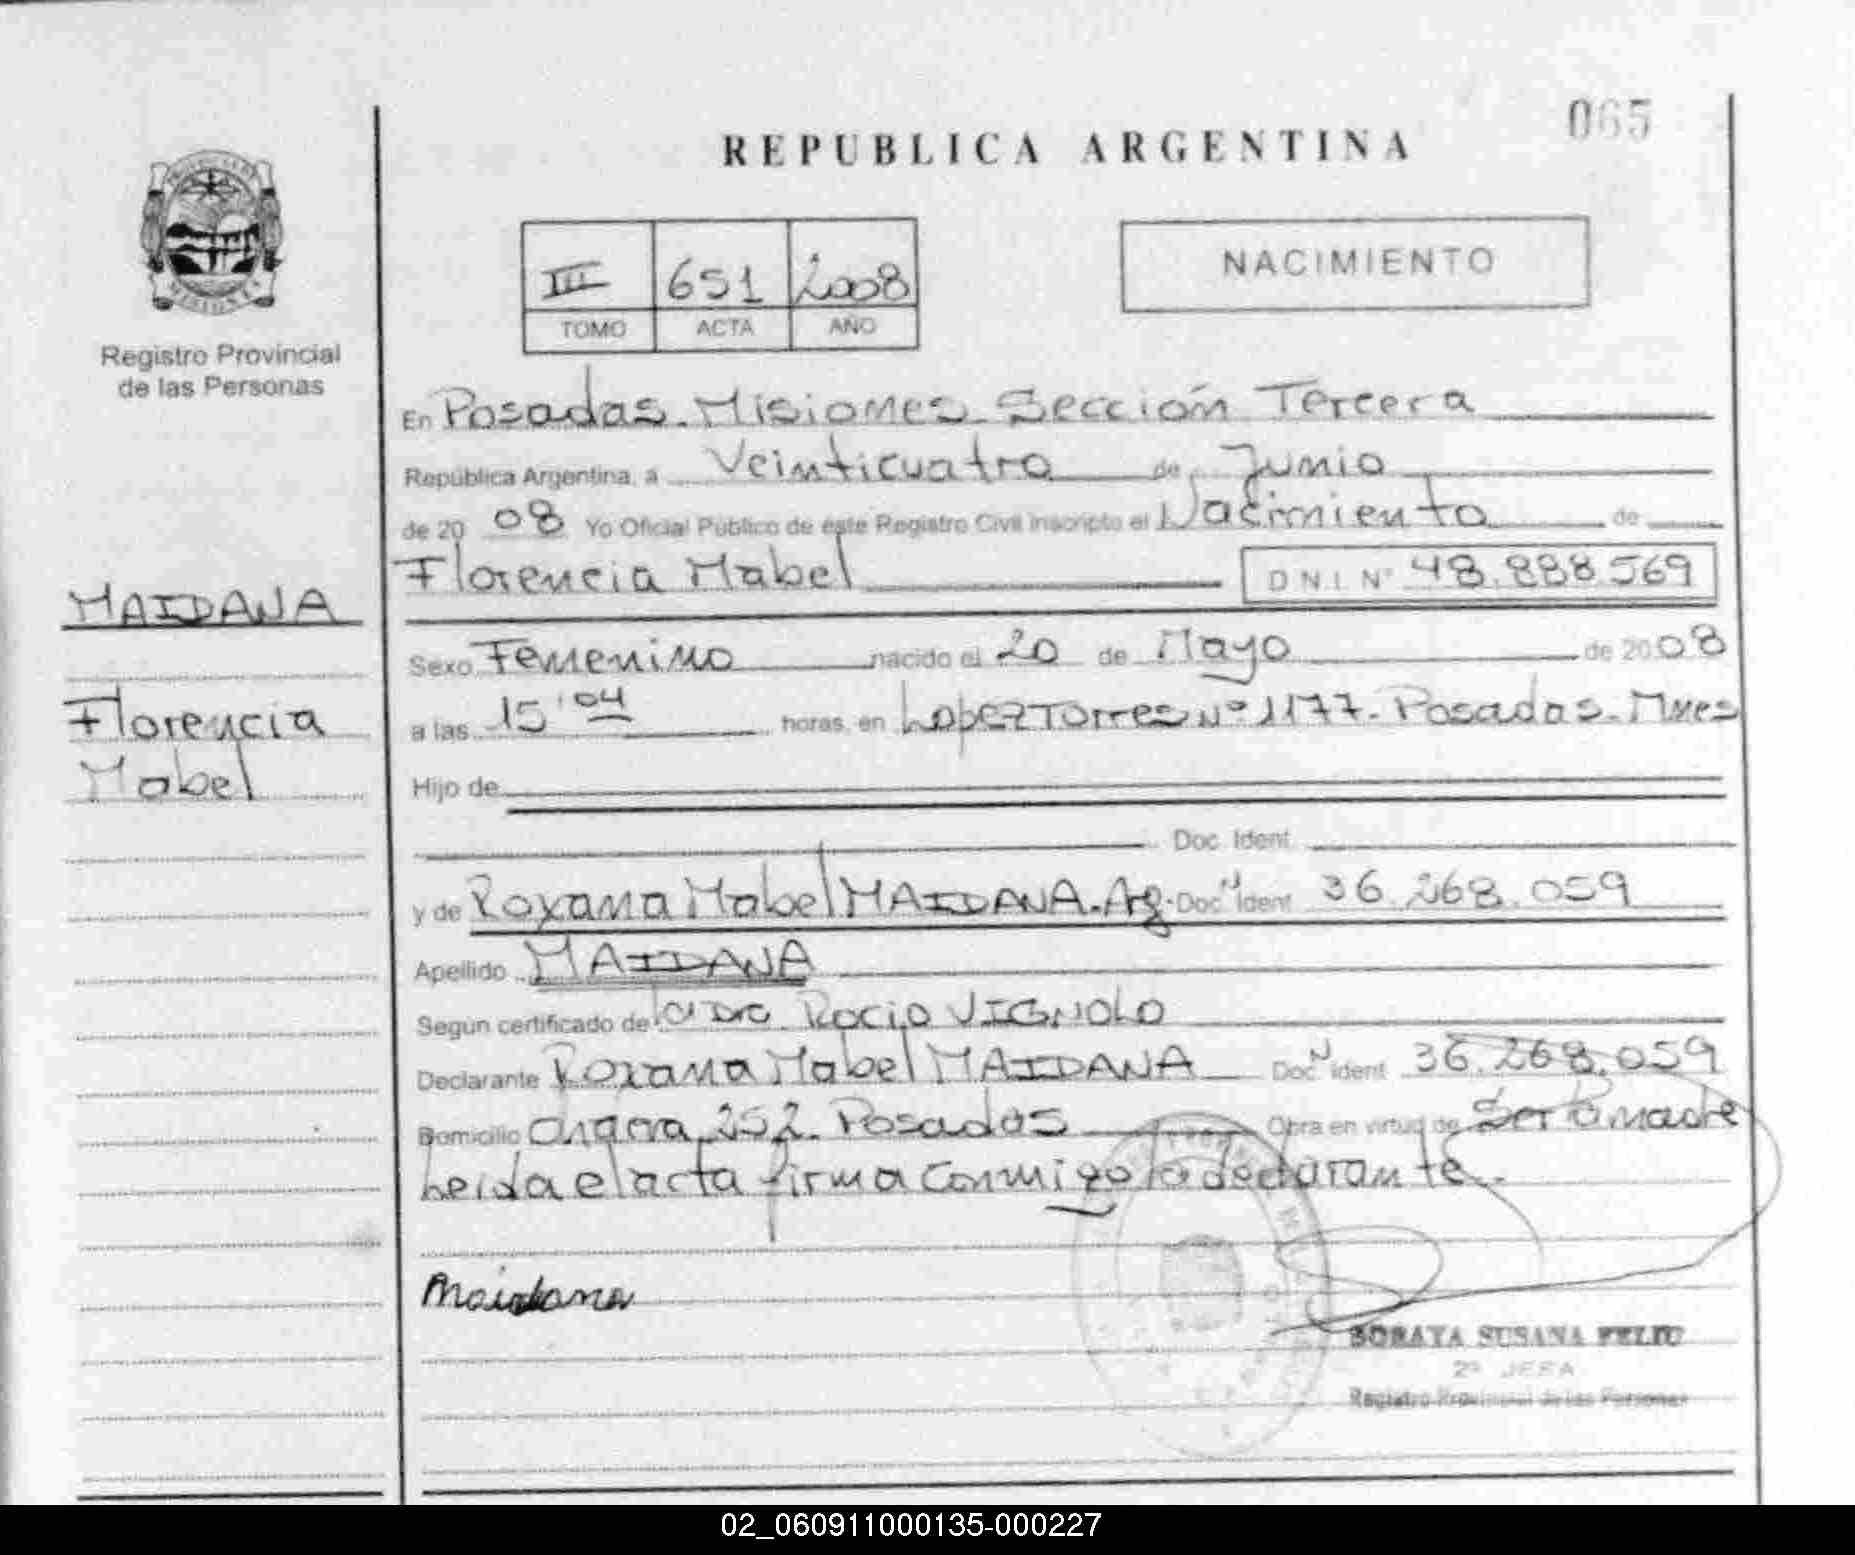 065
REPUBLICA ARGENTINA
III 651 2008
TOMO ACTA AÑO
NACIMIENTO
Registro Provincial
de las Personas
MAIDANA
Florencia
Mabel
En Posadas. Misiones. Sección Tercera
República Argentina, a Veinticuatro de Junio
de 20 08 Yo Oficial Público de éste Registro Civil inscripto el Nacimiento de
Florencia Mabel D N I. N° 48.888.569
Sexo Femenino nacido el 20 de Mayo de 2008
a las 15'04 horas, en Lopez Torres N° 1177. Posadas. Mnes
Hijo de
Doc. Ident.
y de Roxana Mabel MAIDANA. Arg. Doc. N Ident 36.268.059
Apellido MAIDANA
Según certificado de la Dra Rocio VIGNOLO
Declarante Roxana Mabel MAIDANA Doc N Ident 36.268.059
Domicilio 252. Posadas Obra en virtud de Ser la madre
Leida el acta firma conmigo la declarante.
Maidana
SORAYA SUSANA FELIU
2ª JEFA
Registro Provincial de las Personas
02_060911000135-000227